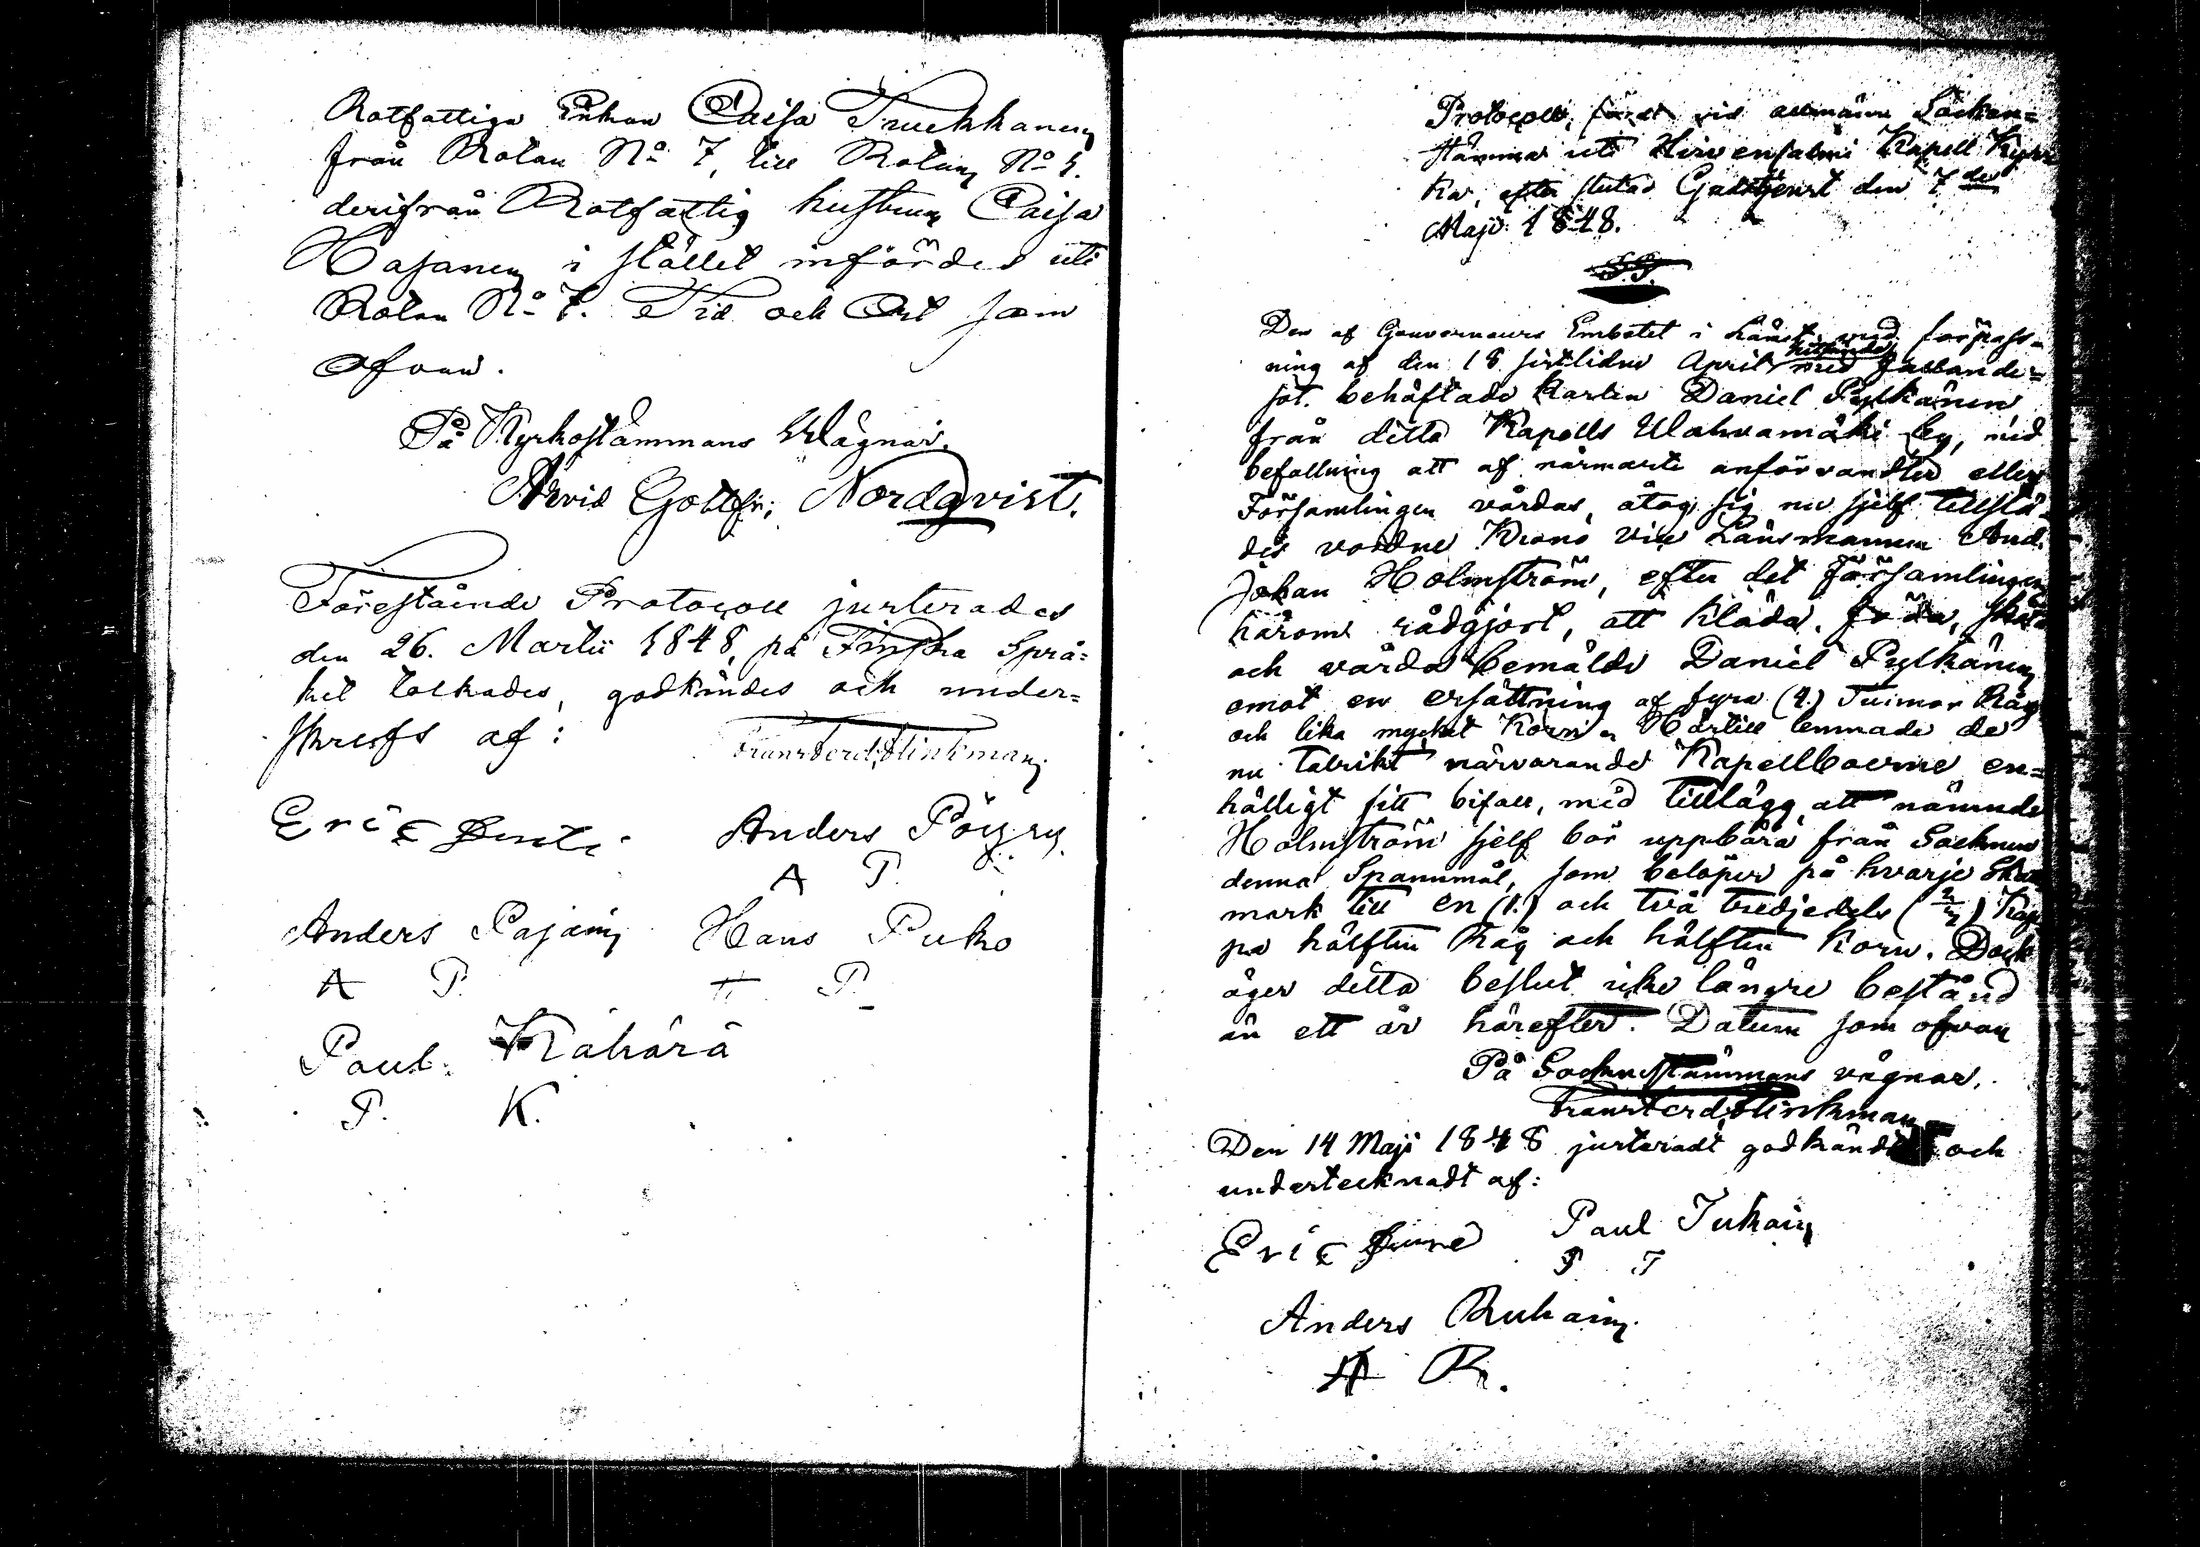 Rotfattiga Enkan Caisa Truchkanen
från Rotan No 7, till Rotan No 5.
derifrån Rotfattig hustrun Caisa
Hasanen i stället infördes uti
Rotan No 7. Tid och Ort som
ofvan.
På Kyrkostämmans Wägnar.
Arvid Gottfr; Nordqvist.
Förestående Protocoll justerades
den 26. Martii 1848, på Finska Språ=
ket tolkades, godkändes och under=
skrefs af:
Frans Ferd; Flinkman
Eric
Anders Pöyry
A P.
Anders Pajain Hans Puko
A P. H P.
Paul Kähärä
P. K.
Protocoll, fördt vid allmänn Socken=
stämma uti Hirvensalmi Kapell Kyrr
ka, efter slutad Gudstjenst den 7de
Maji 1848.
S.D.
Den af Gouverneurs Embetet i Länet med förpass=
ning af den 18 sistlidne April hitsände med fallander=
sot behäftade Karlen Daniel Pylkänen
från detta Kapells Wahvamäki by, med
befallning att af närmaste anförvandter eller
Församlingen vårdas, åtog sig nu sjelf tillstä=
des vordne Krono vice Länsmannen And.
Johan Holmström, efter det Församlingen
härom rådgjort, att kläda, föda, sköta
och vårda bemälde Daniel Pylkänen
emot en ersättning af fyra (4.) Tunnor Råg
och lika mycket Korn. Härtill lemnade de
nu talrikt närvarande Kapellboerne en=
hälligt sitt bifall, med tillägg att nämnde
Holmström sjelf bör uppbära från Socknen
denna Spannmål, som belöper på hvarje Skatt
mark till en (1.) och två tredjedels (2/3) Kap
pa hälften Råg och hälften Korn. Dock
äger detta beslut icke längre bestånd
än ett år härefter. Datum som ofvan
På Sockenstämmans vägnar.
Frans Ferd; Flinkman
Den 14 Maji 1848 justeradt, godkändt och
undertecknadt af:
Eric Paul Jukain
P J
Anders Ruhain
A R.